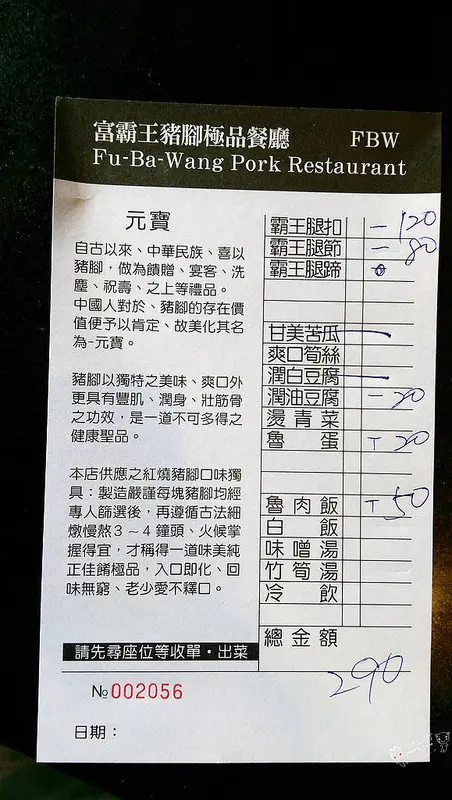 富霸王豬腳極品餐廳 FBW
Fu-Ba-Wang Pork Restaurant
元寶
自古以來、中華民族、喜以
豬腳，做為饋贈、宴客、洗
塵、祝壽、之上等禮品。
中國人對於、豬腳的存在價
值便予以肯定、故美化其名
為-元寶。
豬腳以獨特之美味、爽口外
更具有豐肌、潤身、壯筋骨
之功效，是一道不可多得之
健康聖品。
本店供應之紅燒豬腳口味獨
具：製造嚴謹每塊豬腳均經
專人篩選後，再遵循古法細
燉慢熬3～4鐘頭、火候掌
握得宜，才稱得一道味美純
正佳餚極品，入口即化、回
味無窮、老少愛不釋口。
請先尋座位等收單・出菜
№002056
日期：
霸王腿扣 一 120
霸王腿節 一 80
霸王腿蹄
甘美苦瓜 一
爽口筍絲
潤白豆腐 一
潤油豆腐 一 20
燙青菜
魯蛋 T 20
魯肉飯 T 50
白飯
味噌湯
竹筍湯
冷飲
總金額
290